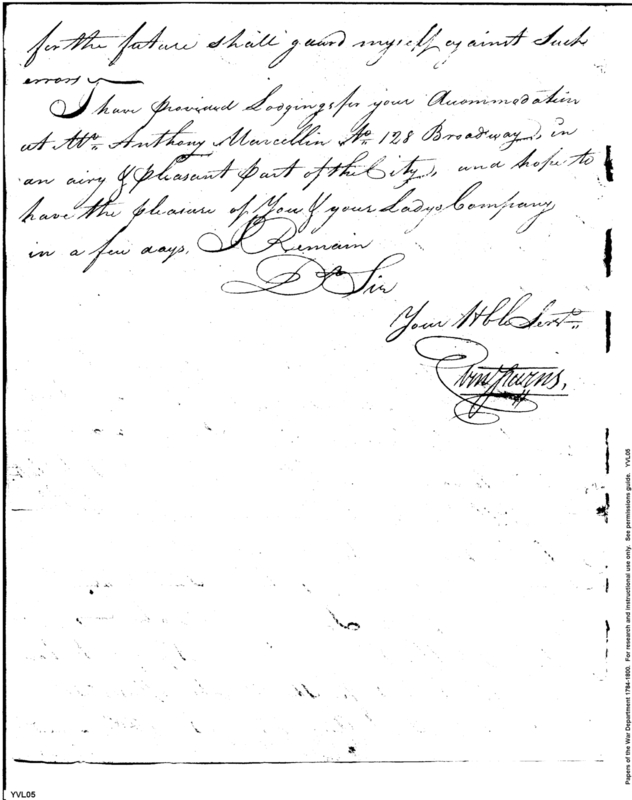 for the future shall guard myself against Such
errors
I have provided Lodgings for your Accommodation
at Mr. Anthony Marcellin No. 128 Broadway, in
an airy & Pleasant Part of the City, and hope to
have the pleasure of You & your Ladys Company
in a few days. I Remain
Dr Sir
Your Hble Servt.
YVL05
Papers of the War Department 1784-1800. For research and instructional use only. See permissions guide. YVL05